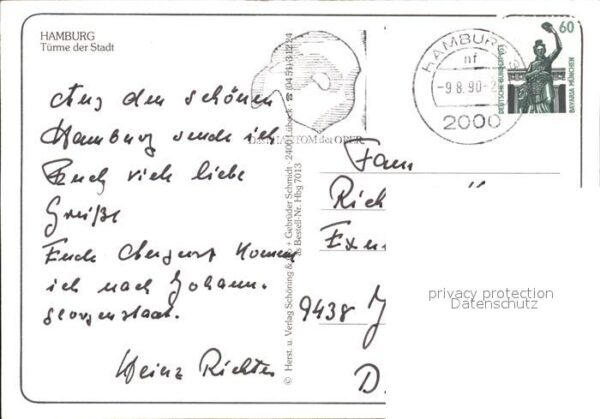 HAMBURG
Türme der Stadt
Aus dem schönen
Hamburg sende ich
Euch viele liebe
Grüße
Ende August komme
ich nach Johann-
georgenstadt.
Heinz Richter
© Herst. u. Verlag Schöning & Co + Gebrüder Schmidt · 2400 Lübeck · ☎ (0451) 31224
Bestell-Nr. Hbg 7013
Das PHANTOM der OPER
HAMBURG
nf
-9.8.90-
2000
60
DEUTSCHE BUNDESPOST
BAVARIA MÜNCHEN
Fam
Rich
9438 J
D
privacy protection
Datenschutz